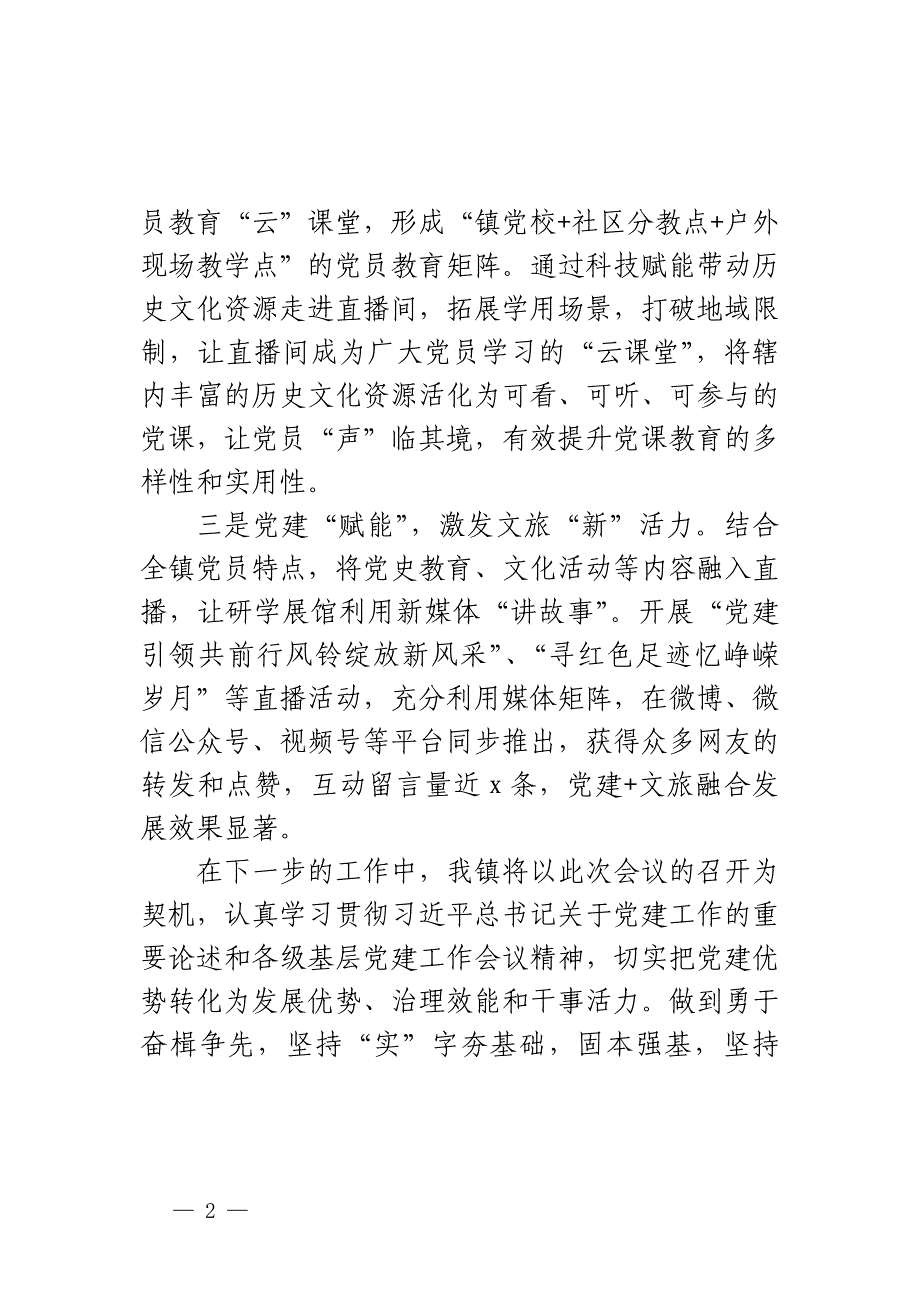 员教育“云”课堂，形成“镇党校+社区分教点+户外
现场教学点”的党员教育矩阵。通过科技赋能带动历
史文化资源走进直播间，拓展学用场景，打破地域限
制，让直播间成为广大党员学习的“云课堂”，将辖
内丰富的历史文化资源活化为可看、可听、可参与的
党课，让党员“声”临其境，有效提升党课教育的多
样性和实用性。
三是党建“赋能”，激发文旅“新”活力。结合
全镇党员特点，将党史教育、文化活动等内容融入直
播，让研学展馆利用新媒体“讲故事”。开展“党建
引领共前行风铃绽放新风采”、“寻红色足迹忆峥嵘
岁月”等直播活动，充分利用媒体矩阵，在微博、微
信公众号、视频号等平台同步推出，获得众多网友的
转发和点赞，互动留言量近 x 条，党建+文旅融合发
展效果显著。
在下一步的工作中，我镇将以此次会议的召开为
契机，认真学习贯彻习近平总书记关于党建工作的重
要论述和各级基层党建工作会议精神，切实把党建优
势转化为发展优势、治理效能和干事活力。做到勇于
奋楫争先，坚持“实”字夯基础，固本强基，坚持
— 2 —